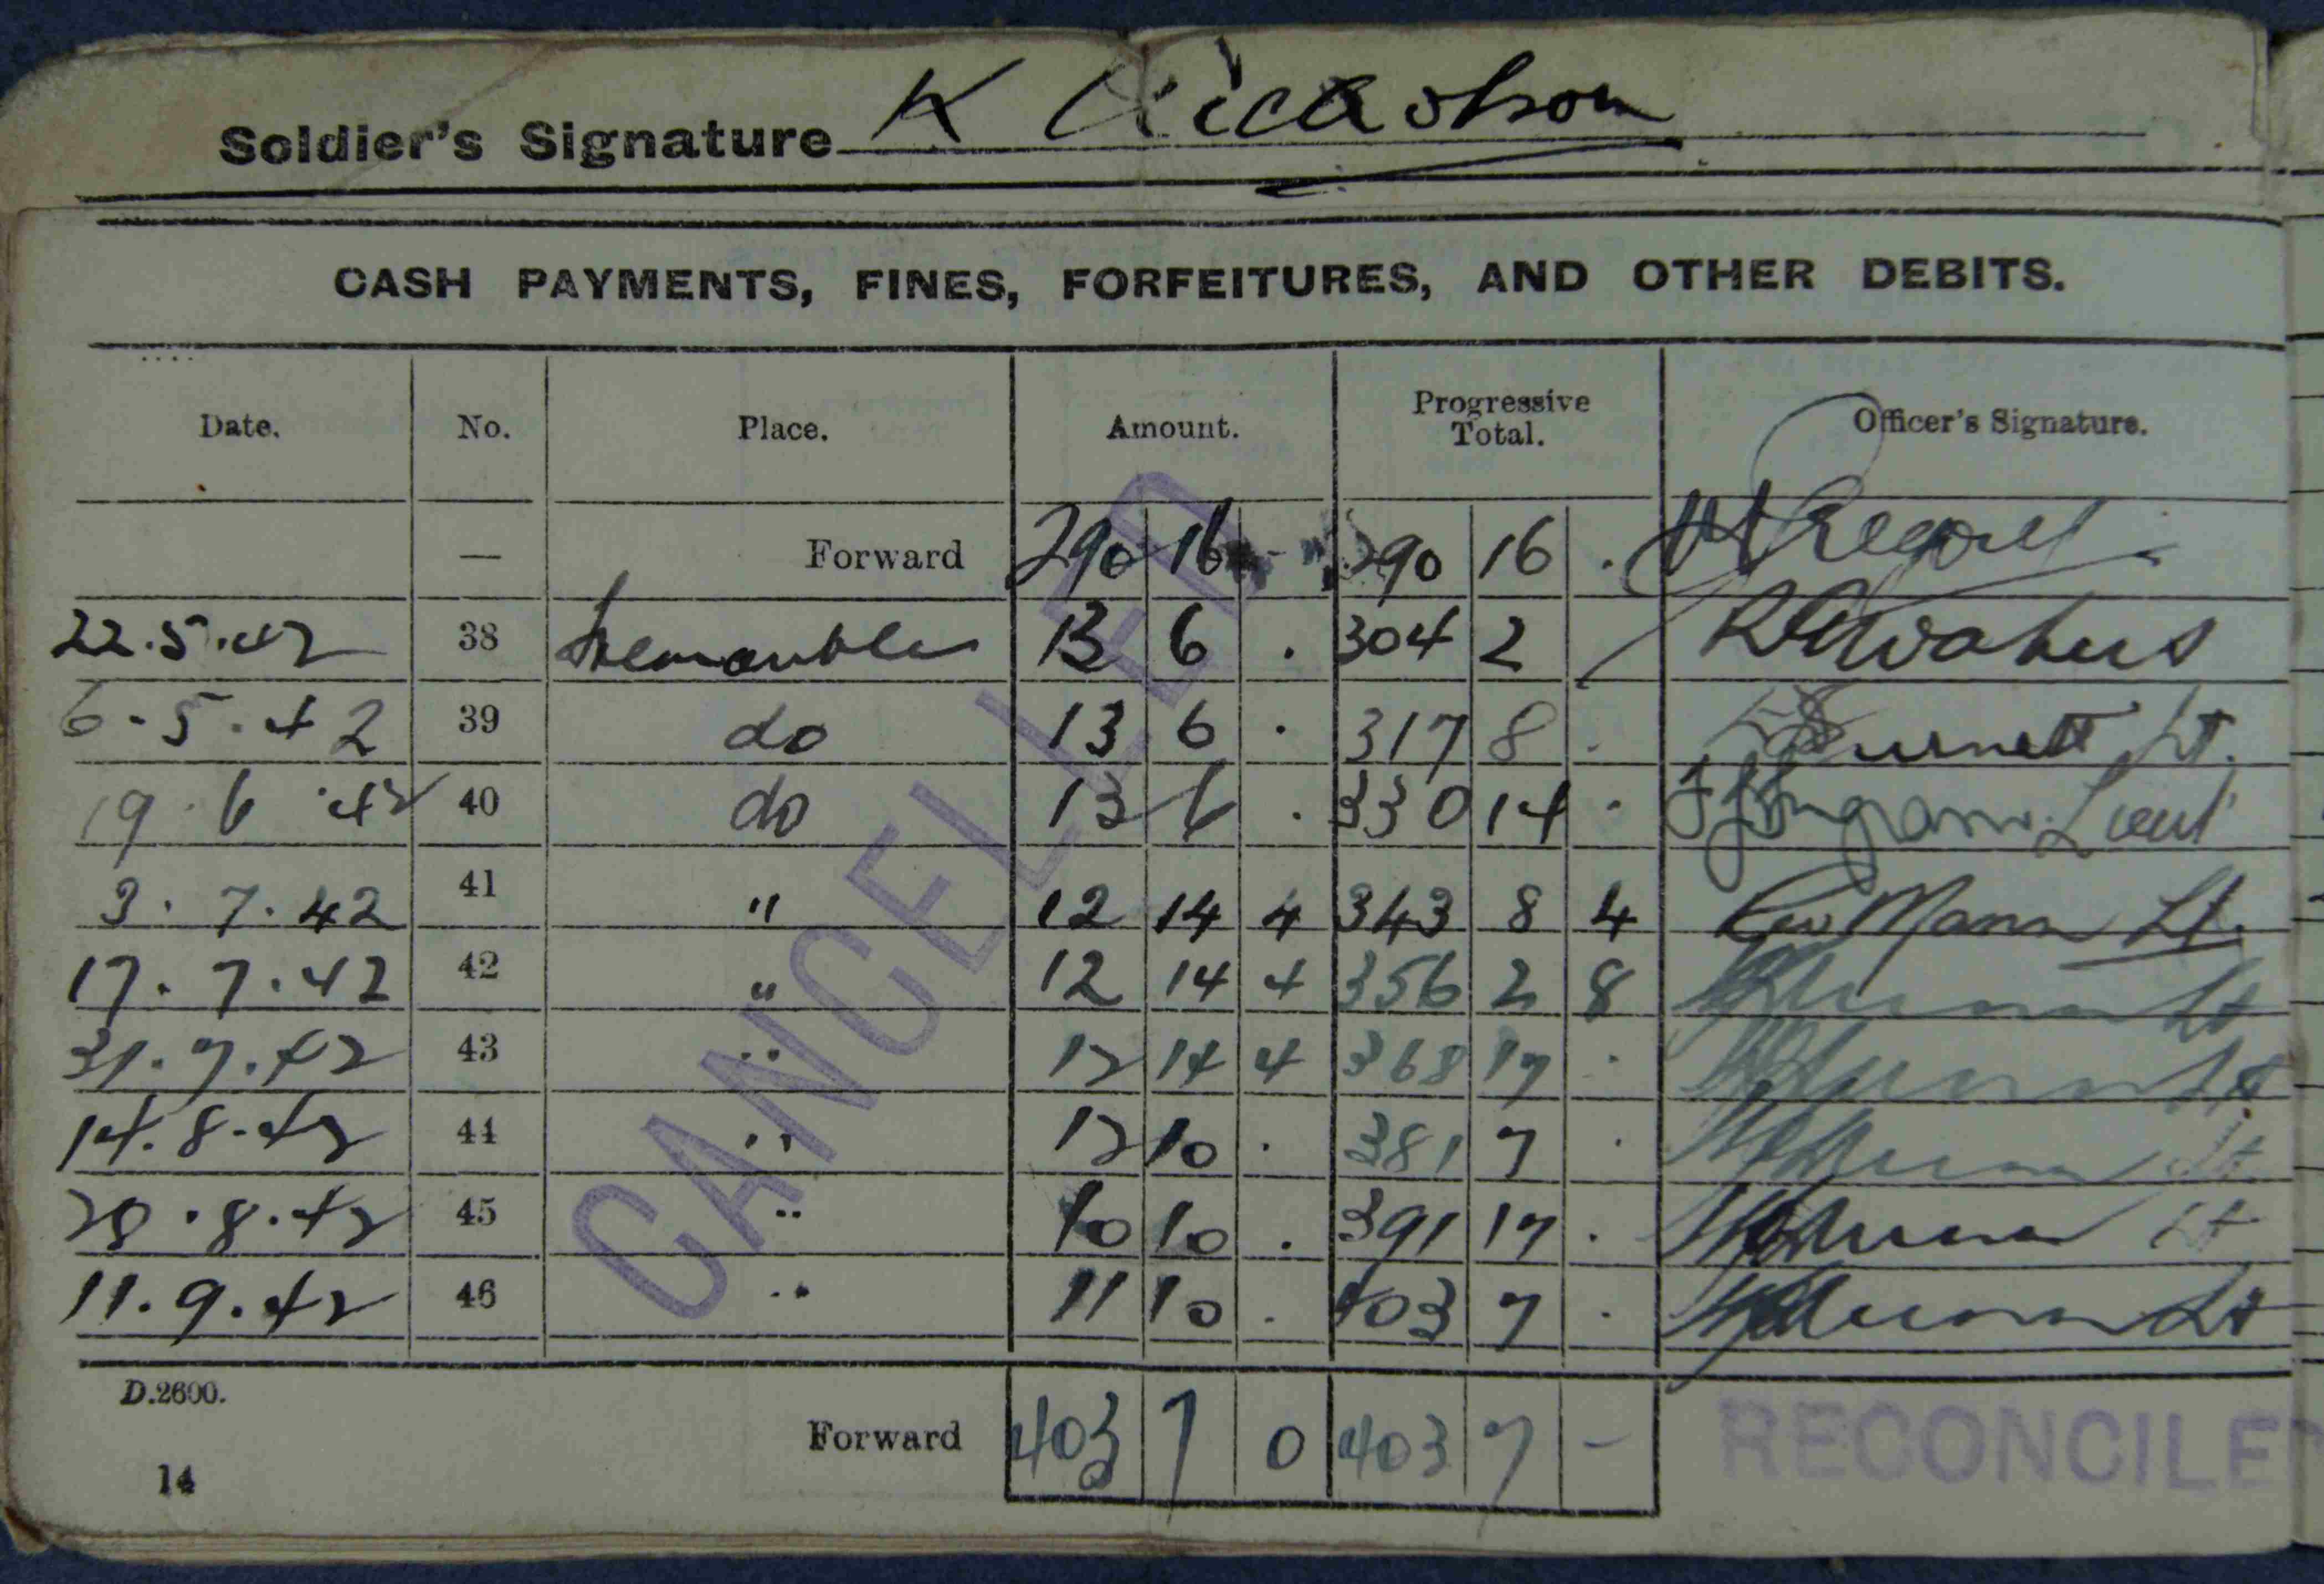 Soldier's Signature K Nickolson
CASH PAYMENTS, FINES, FORFEITURES, AND OTHER DEBITS.
Date. No. Place. Amount. Progressive Total. Officer's Signature.
— Forward 290 16 - 290 16 .
22.5.42 38 Fremantle 13 6 . 304 2
6.5.42 39 do 13 6 . 317 8 . Burnett Lt.
19.6.42 40 do 13 6 . 330 14 . Ingram Lieut
3.7.42 41 " 12 14 4 343 8 4 Mann Lt.
17.7.42 42 " 12 14 4 356 2 8 Lt
31.7.42 43 " 12 14 4 368 17 . Lt
14.8.42 44 " 12 10 . 381 7 . Lt
28.8.42 45 " 10 10 . 391 17 . Lt
11.9.42 46 " 11 10 . 403 7 . Lt
D.2600.
Forward 403 7 0 403 7 -
14
CANCELLED
RECONCILE